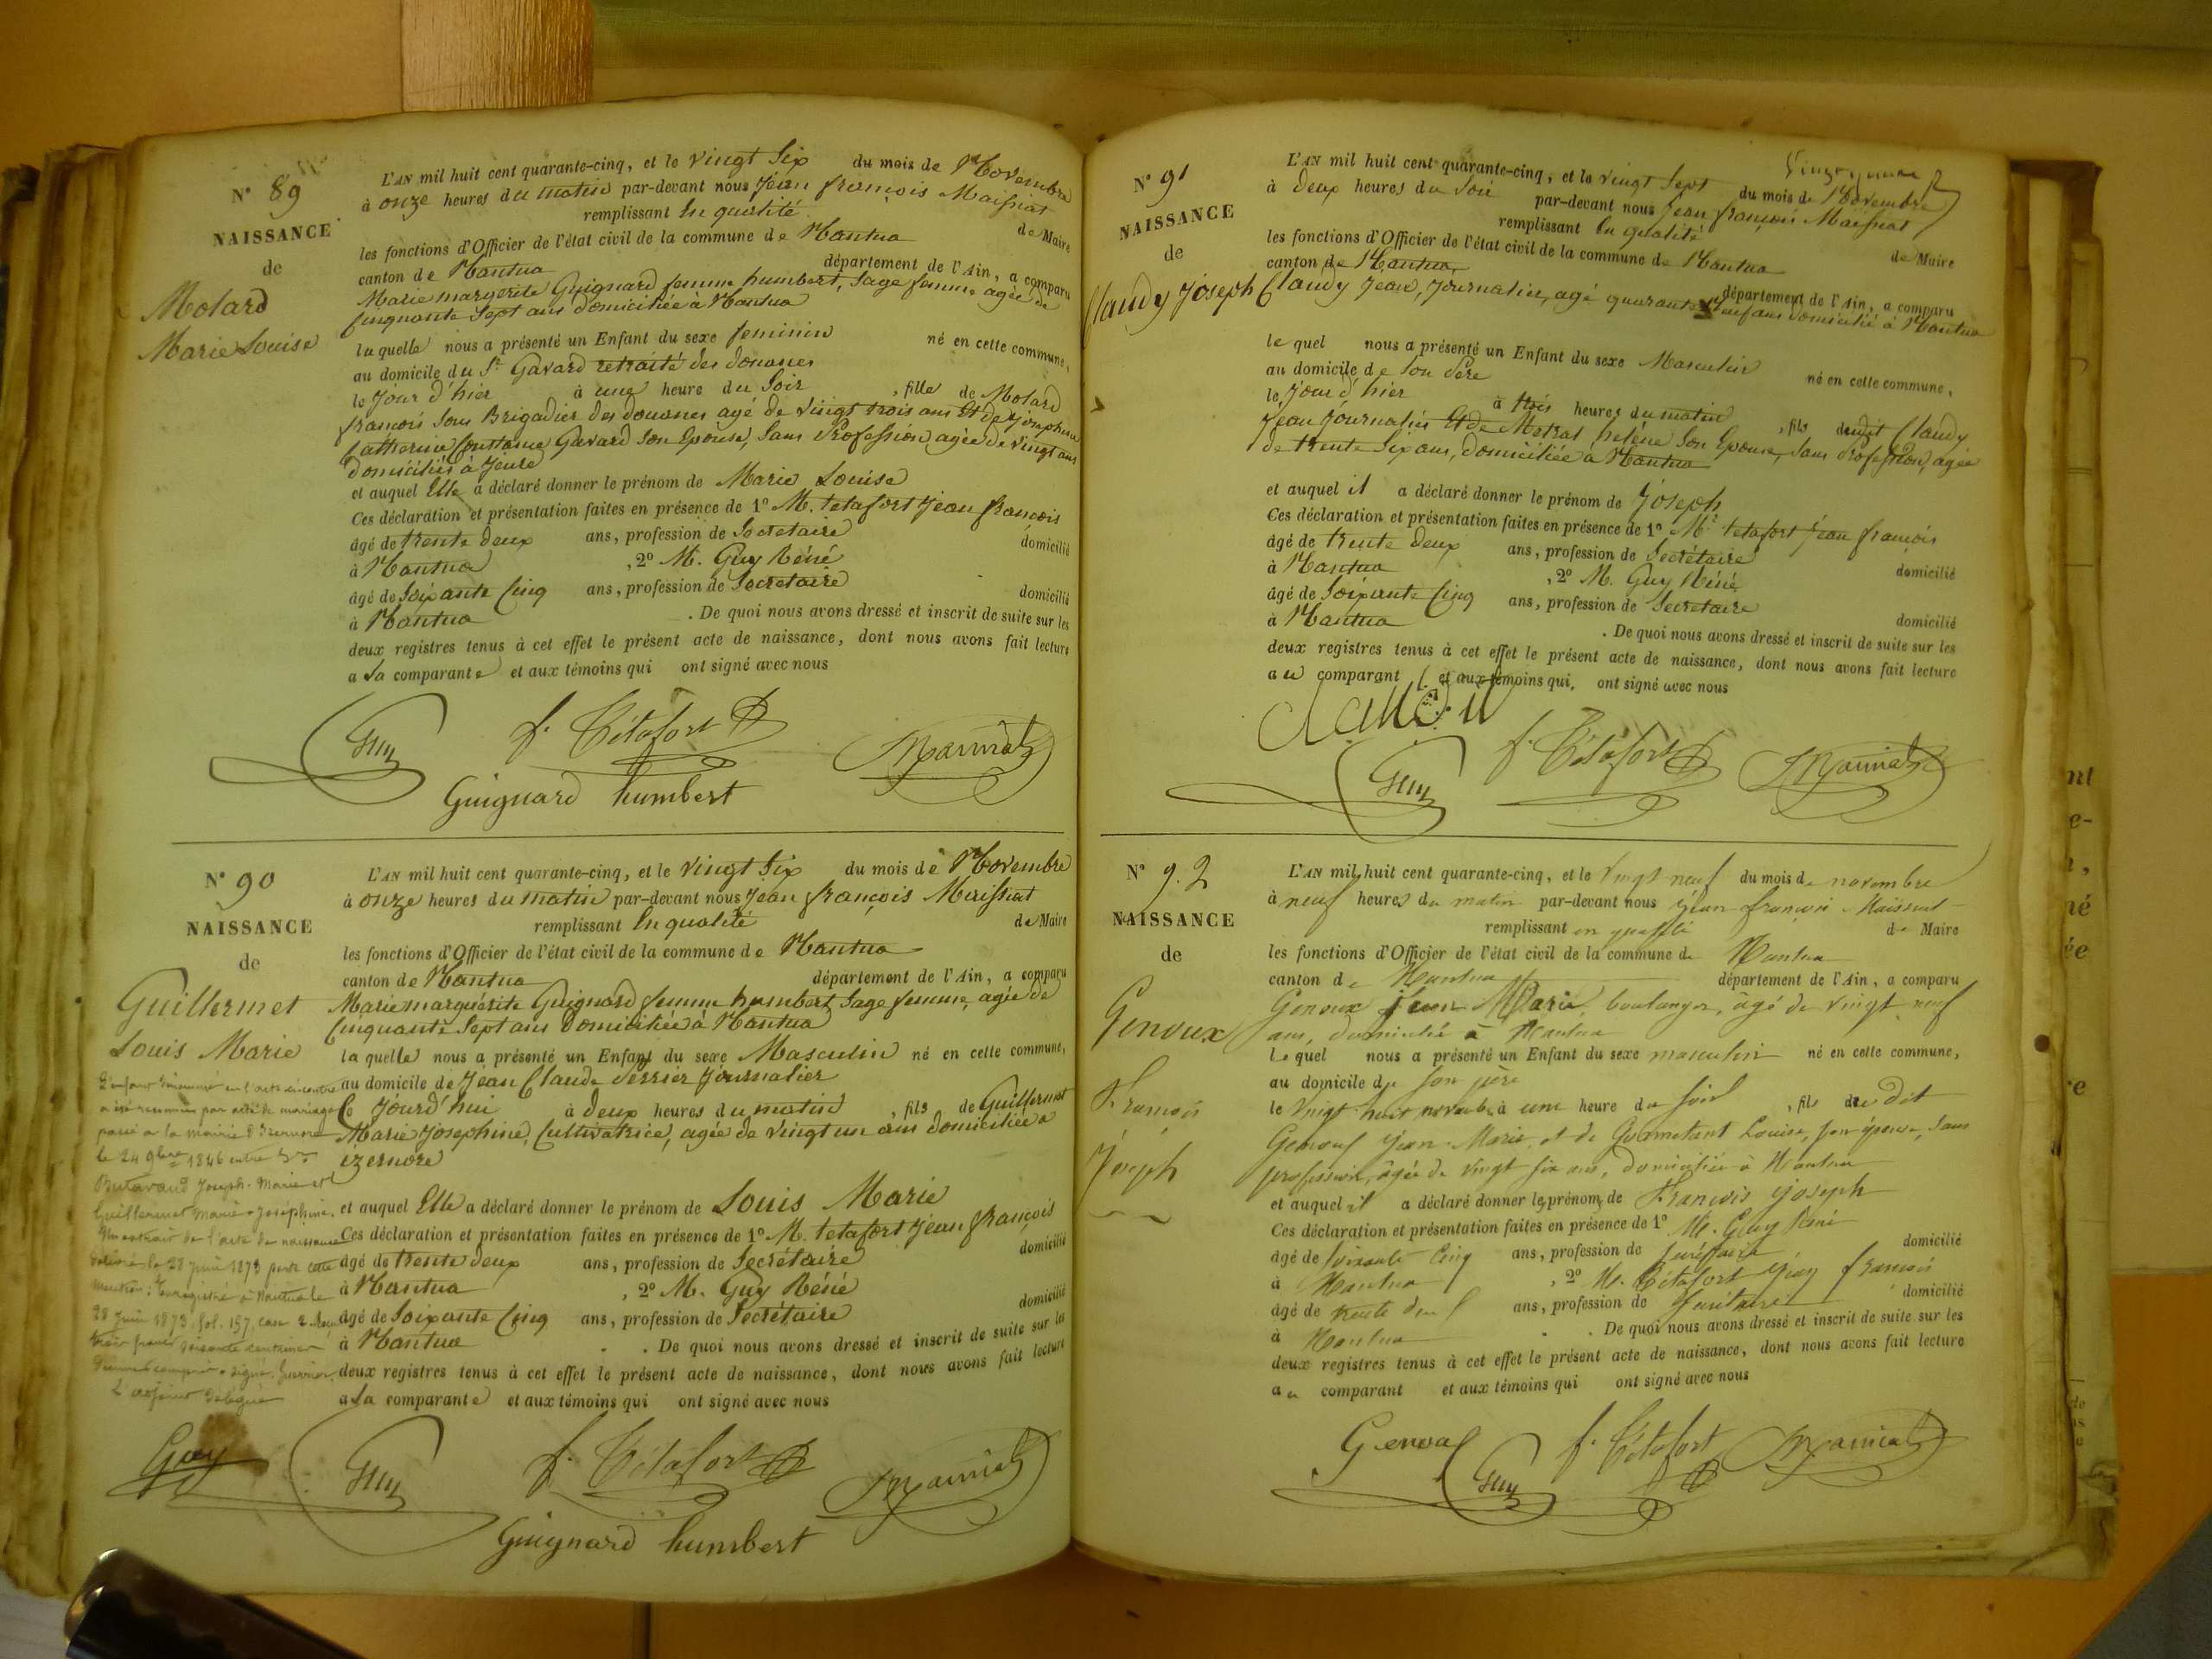 N° 89
NAISSANCE
de
Molard
Marie Louise
L'AN mil huit cent quarante-cinq, et le vingt Six du mois de Novembre
à onze heures du matin par-devant nous Jean françois Maissiat
remplissant En qualité de Maire
les fonctions d'Officier de l'état civil de la commune de Nantua
canton de Nantua département de l'Ain, a comparu
Marie margerite Guignard femme humbert, Sage femme agée de
Cinquante Sept ans domiciliée à Nantua
la quelle nous a présenté un Enfant du sexe feminin né en cette commune,
au domicile du Sr Gavard retraité des douanes
le Jour d'hier à une heure du Soir , fille de Molard
françois Sous Brigadier des douanes agé de vingt trois ans Et de Josephine
Catherine Constance Gavard Son Epouse, Sans Profession agée de vingt ans
domiciliés à
et auquel Elle a déclaré donner le prénom de Marie Louise
Ces déclaration et présentation faites en présence de 1° M. tetafort Jean françois
âgé de trente deux ans, profession de Secretaire domicilié
à Nantua , 2° M. Guy Réné
âgé de Soixante Cinq ans, profession de Secretaire domicilié
à Nantua . De quoi nous avons dressé et inscrit de suite sur les
deux registres tenus à cet effet le présent acte de naissance, dont nous avons fait lecture
a La comparante et aux témoins qui ont signé avec nous
Guy f. Tétafort Maissiat
Guignard humbert
N° 90
NAISSANCE
de
Guillermet
Louis Marie
L'AN mil huit cent quarante-cinq, et le vingt Six du mois de Novembre
à onze heures du matin par-devant nous Jean françois Maissiat
remplissant En qualité de Maire
les fonctions d'Officier de l'état civil de la commune de Nantua
canton de Nantua département de l'Ain, a comparu
Marie marguérite Guignard femme humbert Sage femme, agée de
Cinquante Sept ans domiciliée à Nantua
la quelle nous a présenté un Enfant du sexe Masculin né en cette commune,
au domicile de Jean Claude Perrier Journalier
le Jourd'hui à deux heures du matin , fils de Guillermet
Marie Josephine, Cultivatrice, agée de vingt un ans domiciliée a
izernore
et auquel Elle a déclaré donner le prénom de Louis Marie
Ces déclaration et présentation faites en présence de 1° M. tetafort Jean françois
âgé de trente deux ans, profession de Secrétaire domicilié
à Nantua , 2° M. Guy Réné
âgé de Soixante Cinq ans, profession de Secrétaire domicilié
à Nantua . De quoi nous avons dressé et inscrit de suite sur les
deux registres tenus à cet effet le présent acte de naissance, dont nous avons fait lecture
a La comparante et aux témoins qui ont signé avec nous
L'enfant dénommé en l'acte ci-contre
a été reconnu par acte de mariage
passé a la mairie d'Izernore
le 24 9bre 1846 entre
Butavand Joseph-Marie et
Guillermet Marie-Joséphine.
Un extrait de l'acte de naissance
délivré le 28 Juin 1873 porte cette
mention: Enregistré à Nantua le
28 Juin 1873, fol. 157, case 2. Reçu
trois francs soixante centimes
décimes compris. Signé: Guerrier.
L'adjoint délégué
Guy
Guy f. Tétafort Maissiat
Guignard humbert
N° 91
NAISSANCE
de
Claudy Joseph
L'AN mil huit cent quarante-cinq, et le vingt Sept du mois de Novembre
à deux heures du Soir par-devant nous Jean françois Maissiat
remplissant En qualité de Maire
les fonctions d'Officier de l'état civil de la commune de Nantua
canton de Nantua département de l'Ain, a comparu
Claudy Jean, Journalier, agé quarante neuf ans domicilié à Nantua
le quel nous a présenté un Enfant du sexe Masculin né en cette commune,
au domicile de Son Père
le Jour d'hier à trois heures du matin , fils dudit Claudy
Jean Journalier Et de Motral heléne Son Epouse, Sans Profession, agée
de trente Six ans, domiciliée a Nantua
et auquel il a déclaré donner le prénom de Joseph
Ces déclaration et présentation faites en présence de 1° Mr tetafort Jean françois
âgé de trente deux ans, profession de Secrétaire domicilié
à Nantua , 2° M. Guy Réné
âgé de Soixante Cinq ans, profession de Secretaire domicilié
à Nantua . De quoi nous avons dressé et inscrit de suite sur les
deux registres tenus à cet effet le présent acte de naissance, dont nous avons fait lecture
au comparant et aux témoins qui, ont signé avec nous
Guy f. Tétafort Maissiat
N° 92
NAISSANCE
de
Genoux
François
Joseph
L'AN mil huit cent quarante-cinq, et le vingt neuf du mois de novembre
à neuf heures du matin par-devant nous Jean françois Maissiat
remplissant en qualité de Maire
les fonctions d'Officier de l'état civil de la commune de Nantua
canton de Nantua département de l'Ain, a comparu
Genoux Jean Marie, boulanger, âgé de vingt neuf
ans, domicilié à Nantua
Le quel nous a présenté un Enfant du sexe masculin né en cette commune,
au domicile de son père
le vingt huit novembre à une heure du soir , fils du dit
Genoux Jean-Marie et de Louise, son épouse, sans
profession, âgée de vingt six ans, domiciliée à Nantua
et auquel il a déclaré donner les prénoms de François joseph
Ces déclaration et présentation faites en présence de 1° M. Guy Réné
âgé de soixante Cinq ans, profession de Secrétaire domicilié
à Nantua , 2° M. Tétafort Jean françois
âgé de trente deux ans, profession de secrétaire domicilié
à Nantua . De quoi nous avons dressé et inscrit de suite sur les
deux registres tenus à cet effet le présent acte de naissance, dont nous avons fait lecture
au comparant et aux témoins qui ont signé avec nous
Guy f. Tétafort Maissiat